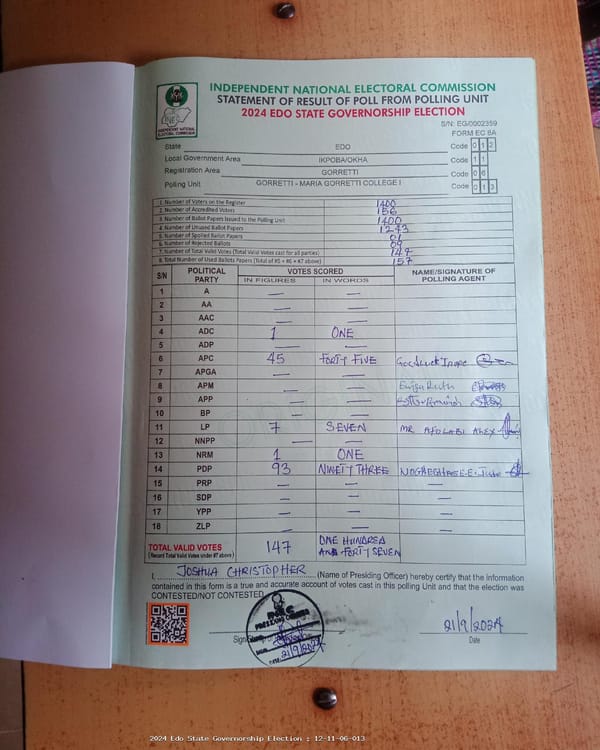 INDEPENDENT NATIONAL ELECTORAL COMMISSION
STATEMENT OF RESULT OF POLL FROM POLLING UNIT
2024 EDO STATE GOVERNORSHIP ELECTION
INDEPENDENT NATIONAL ELECTORAL COMMISSION
S/N: EG/0002359
FORM EC 8A
State EDO Code 0 1 2
Local Government Area IKPOBA/OKHA Code 1 1
Registration Area GORRETTI Code 0 6
Polling Unit GORRETTI - MARIA GORRETTI COLLEGE I Code 0 1 3
1. Number of Voters on the Register 1400
2. Number of Accredited Voters 156
3. Number of Ballot Papers Issued to the Polling Unit 1400
4. Number of Unused Ballot Papers 1243
5. Number of Spoiled Ballot Papers 01
6. Number of Rejected Ballots 09
7. Number of Total Valid Votes (Total Valid Votes cast for all parties) 147
8. Total Number of Used Ballots Papers (Total of #5 + #6 + #7 above) 157
S/N POLITICAL PARTY VOTES SCORED NAME/SIGNATURE OF POLLING AGENT
IN FIGURES IN WORDS
1 A — —
2 AA — —
3 AAC — —
4 ADC 1 ONE
5 ADP — —
6 APC 45 FORTY FIVE
7 APGA — —
8 APM — —
9 APP — —
10 BP — —
11 LP 7 SEVEN MR AFOLABI ALEX
12 NNPP — —
13 NRM 1 ONE
14 PDP 93 NINETY THREE
15 PRP — —
16 SDP — —
17 YPP — —
18 ZLP — —
TOTAL VALID VOTES 147 ONE HUNDRED AND FORTY SEVEN
(Record Total Valid Votes under #7 above)
I, JOSHUA CHRISTOPHER (Name of Presiding Officer) hereby certify that the information
contained in this form is a true and accurate account of votes cast in this polling Unit and that the election was
CONTESTED/NOT CONTESTED
INEC
PRESIDING OFFICER
DATE: 21/9/2024
21/9/2024
Date
2024 Edo State Governorship Election : 12-11-06-013